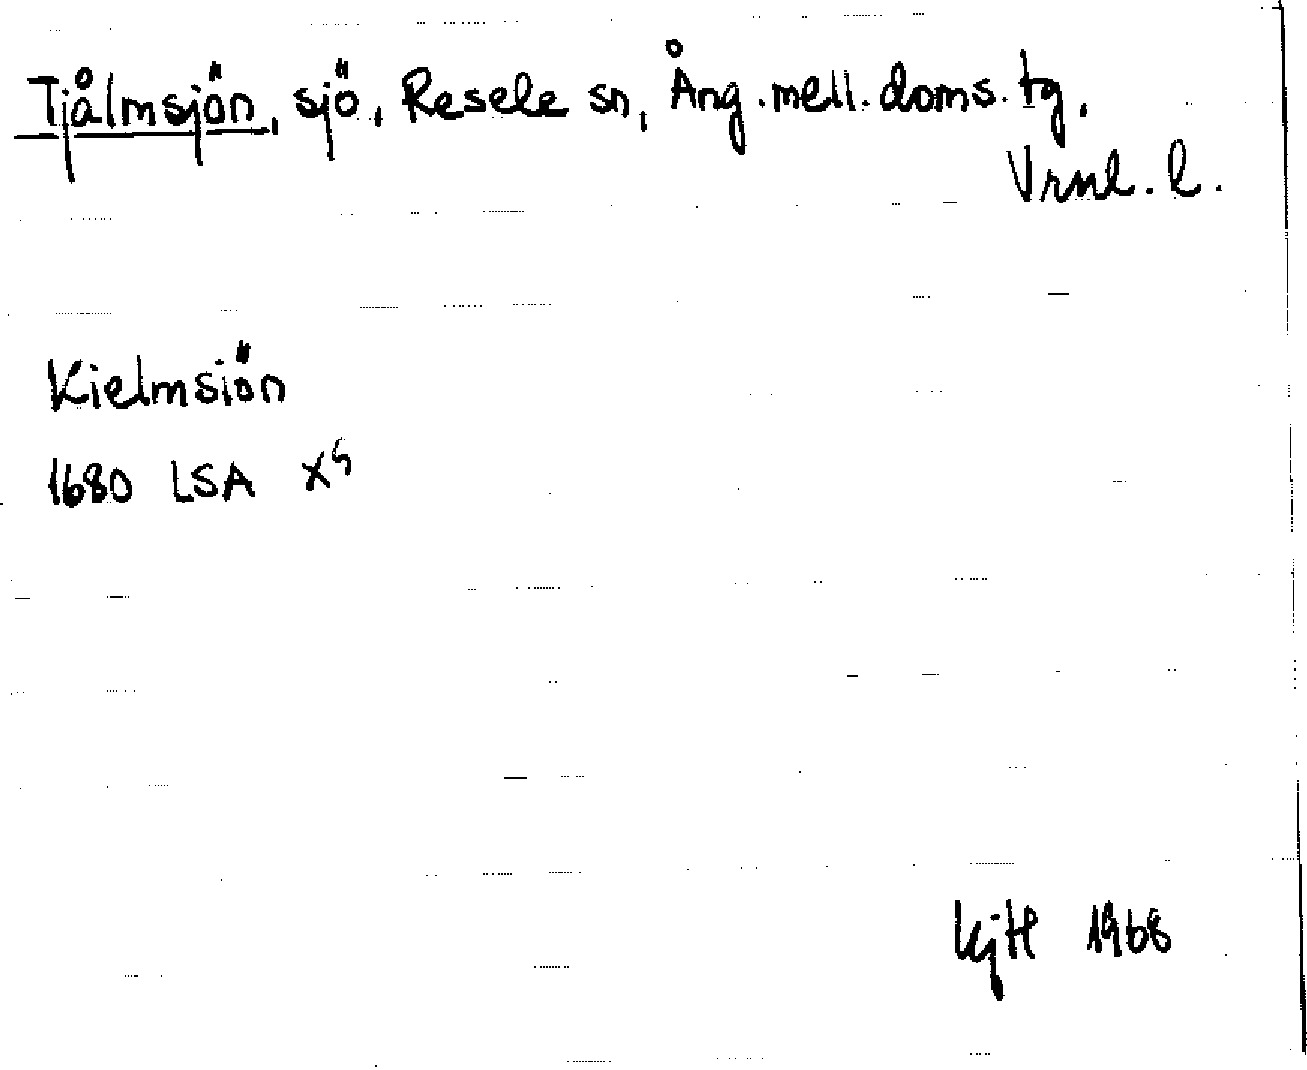 Tjålmsjön, sjö, Resele sn, Ång.mell.doms.tg.
Vrnl. l.
Kielmsiön
1680 LSA X5
KjH 1968